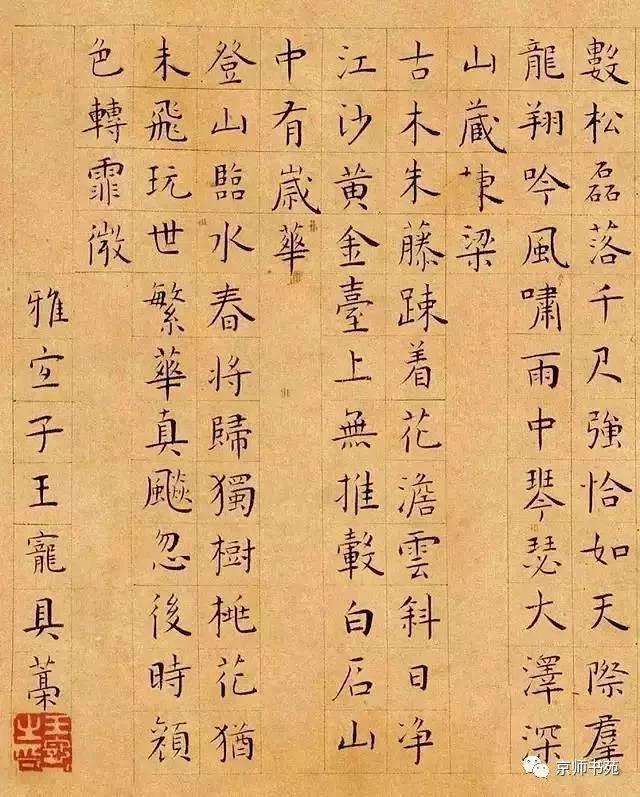 數松磊落千尺強恰如天際羣
龍翔吟風嘯雨中琴瑟大澤深
山蔵棟梁
古木朱藤踈着花澹雲斜日净
江沙黄金臺上無推轂白石山
中有歳華
登山臨水春將歸獨樹桃花猶
未飛玩世繁華真飈忽後時顔
色轉霏微
雅宜子王寵具藁
王寵之印
京师书苑